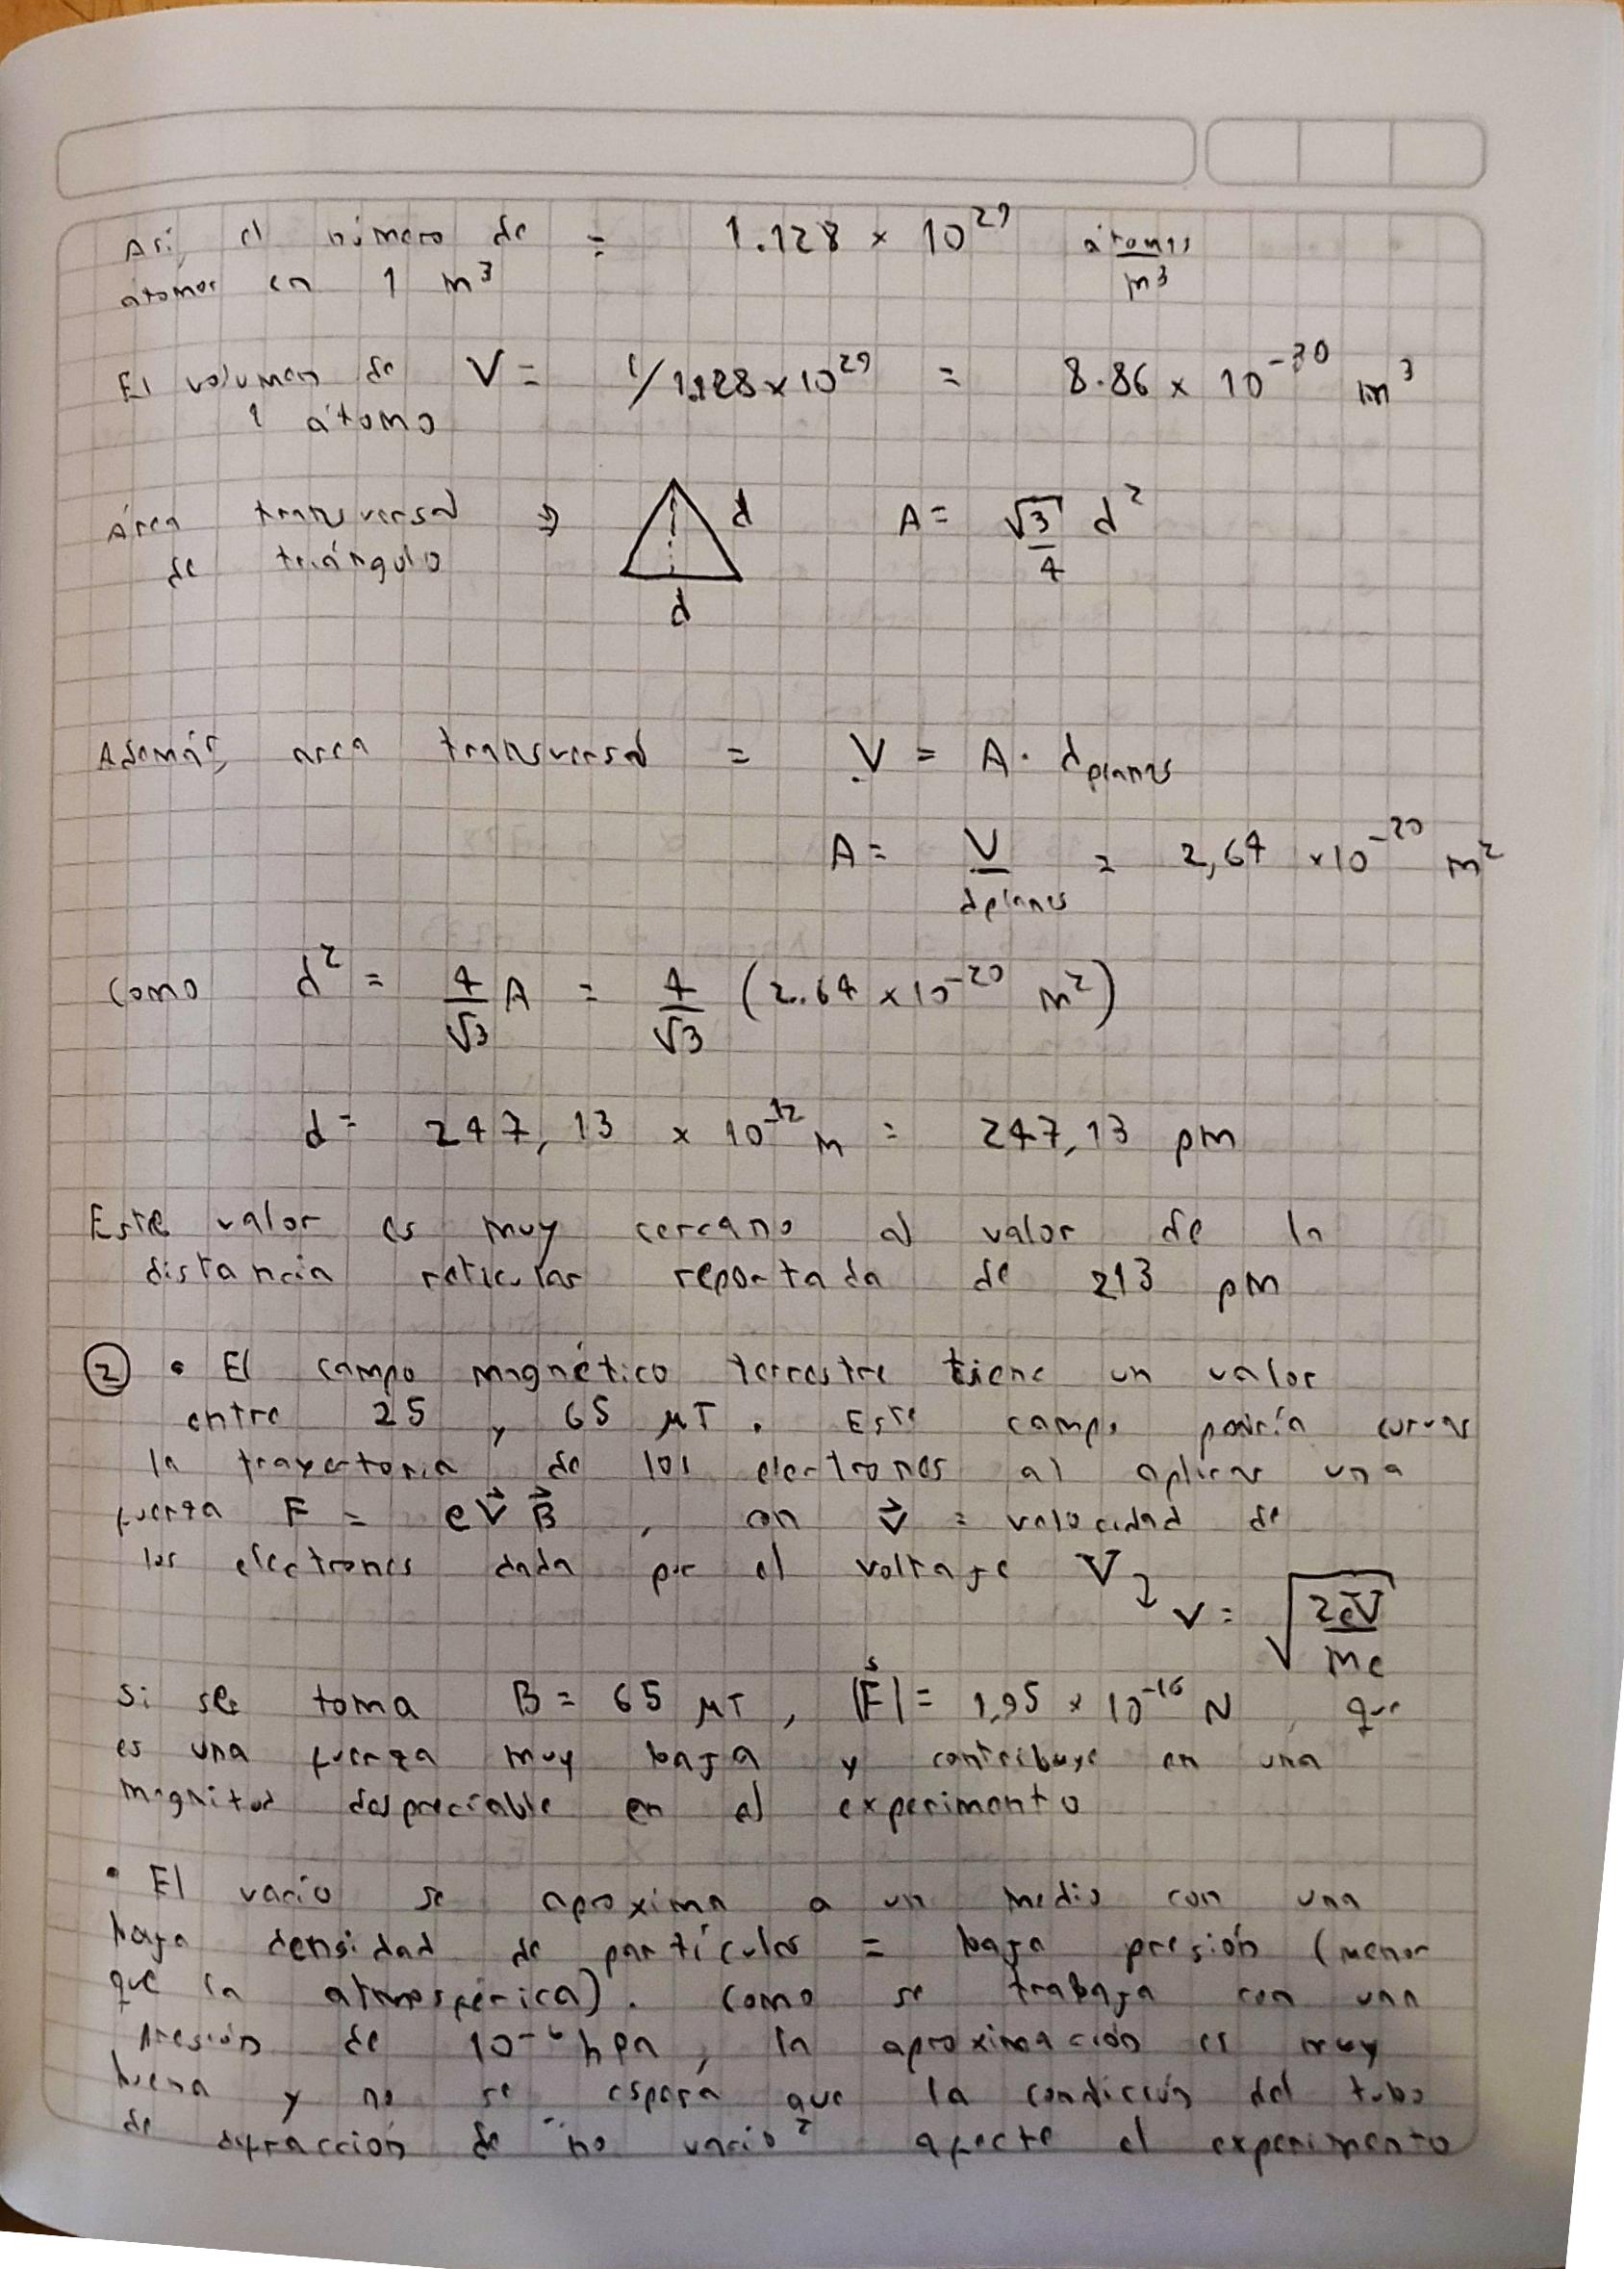 Así, el número de = 1.128 × 10^29 átomos/m^3
átomos en 1 m^3
El volumen de V = 1/1.128×10^29 = 8.86 × 10^-30 m^3
1 átomo
Área transversal ⇒ d A = √3/4 d^2
de triángulo
d
Además, area transversal = V = A · dplanos
A = V/dplanos = 2,64 ×10^-20 m^2
Como d^2 = 4/√3 A = 4/√3 (2.64 ×10^-20 m^2)
d = 247,13 × 10^-12 m = 247,13 pm
Este valor es muy cercano al valor de la
distancia reticular reportada de 213 pm
② • El campo magnético terrestre tiene un valor
entre 25 y 65 μT. Este campo podría curvar
la trayectoria de los electrones al aplicar una
fuerza F = e v⃗ B⃗, con v⃗ = velocidad de
los electrones dada por el voltaje V
v = √(2eV/me)
Si se toma B = 65 μT, |F⃗| = 1,95 × 10^-16 N, que
es una fuerza muy baja y contribuye en una
magnitud despreciable en el experimento
• El vacío se aproxima a un medio con una
baja densidad de partículas = baja presión (menor
que la atmosférica). Como se trabaja con una
presión de 10^-6 hPa, la aproximación es muy
buena y no se espera que la condición del tubo
de difracción de "no vacío" afecte el experimento